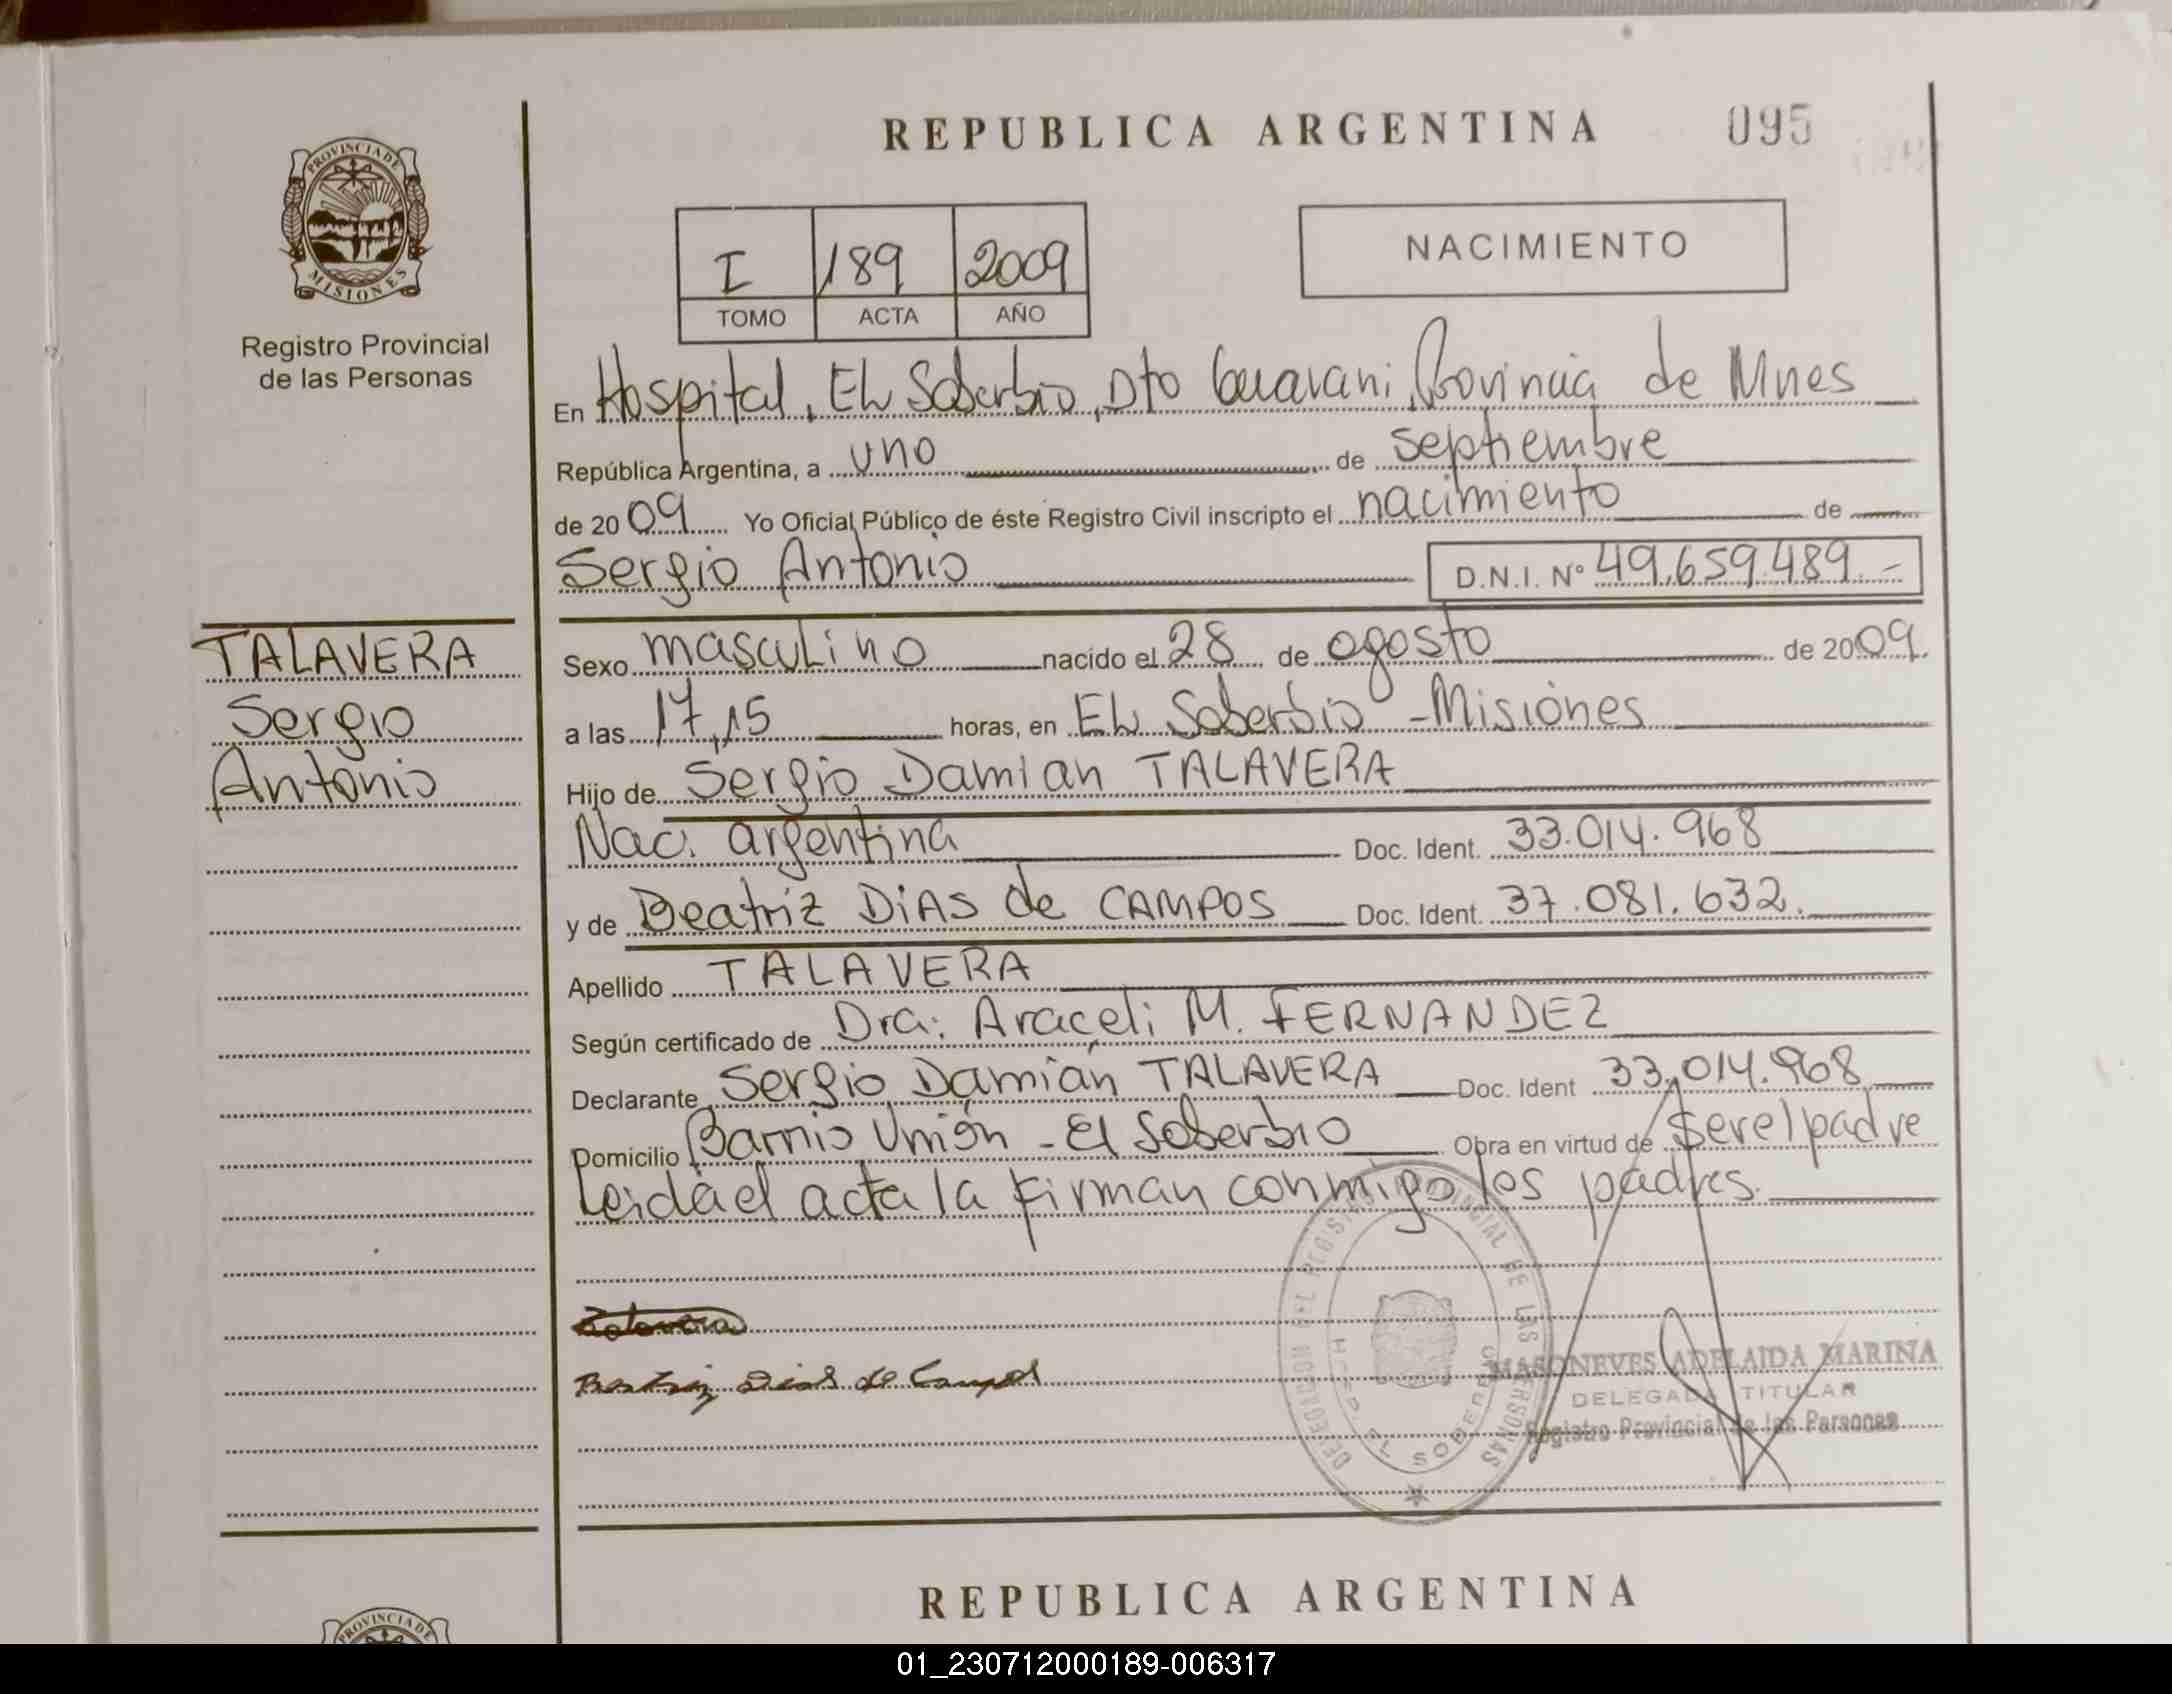 REPUBLICA ARGENTINA 095
PROVINCIA DE
MISIONES
I 189 2009
TOMO ACTA AÑO
NACIMIENTO
Registro Provincial
de las Personas
En Hospital, El Soberbio, Dto Guarani, Provincia de Mnes
República Argentina, a uno de septiembre
de 2009 Yo Oficial Público de éste Registro Civil inscripto el nacimiento de
Sergio Antonio D.N.I. Nº 49.659.489.-
TALAVERA
Sergio
Antonio
Sexo masculino nacido el 28 de agosto de 2009.
a las 17,15 horas, en El Soberbio - Misiones
Hijo de Sergio Damian TALAVERA
Nac. argentina Doc. Ident. 33.014.968
y de Beatriz DiAS de CAMPOS Doc. Ident. 37.081.632.
Apellido TALAVERA
Según certificado de Dra: Araceli M. FERNANDEZ
Declarante Sergio Damián TALAVERA Doc. Ident 33.014.968
Domicilio Barrio Unión - El Soberbio Obra en virtud de Ser el padre
Leida el acta la firman conmigo los padres.
DELEGACION DEL REGISTRO PROVINCIAL DE LAS PERSONAS
HOSP. EL SOBERBIO
Talavera
Beatriz Dias de Campos
MASONEVES ADELAIDA MARINA
DELEGADA TITULAR
Registro Provincial de las Personas
REPUBLICA ARGENTINA
PROVINCIA DE
01_230712000189-006317